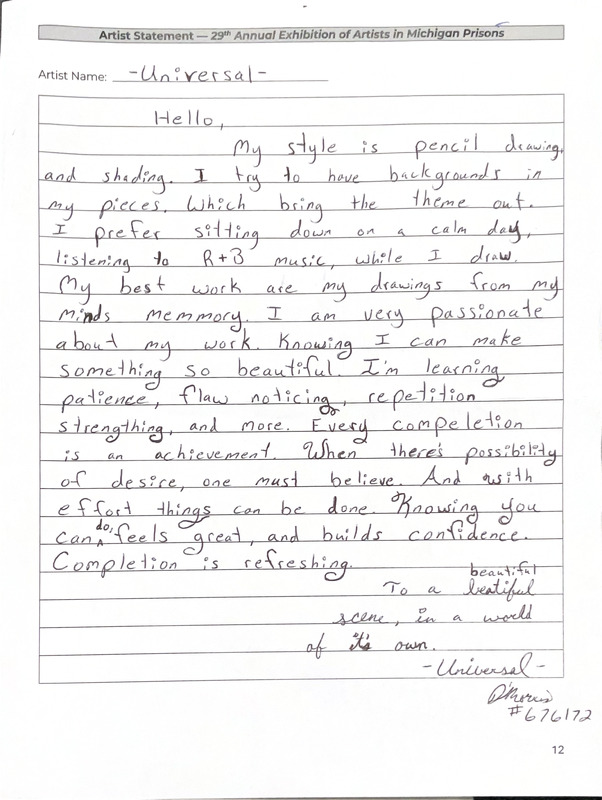 Artist Statement — 29th Annual Exhibition of Artists in Michigan Prisons
Artist Name: -Universal-
Hello,
My style is pencil drawing,
and shading. I try to have backgrounds in
my pieces. Which bring the theme out.
I prefer sitting down on a calm day,
listening to R+B music, while I draw.
My best work are my drawings from my
minds memmory. I am very passionate
about my work. Knowing I can make
something so beautiful. I'm learning
patience, flaw noticing, repetition
strengthing, and more. Every compeletion
is an achievement. When there's possibility
of desire, one must believe. And with
effort things can be done. Knowing you
can do, feels great, and builds confidence.
Completion is refreshing.
beautiful
To a beatiful
scene, in a world
of it's own.
-Universal-
D'Morris
#676172
12